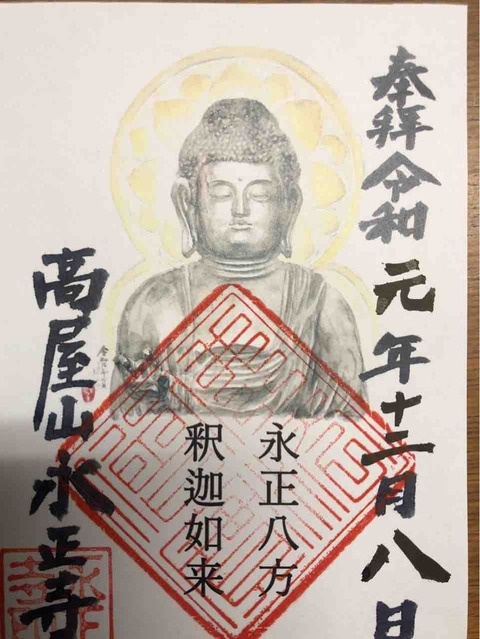 奉拝令和元年十二月八日
永正八方
釈迦如来
高屋山永正寺